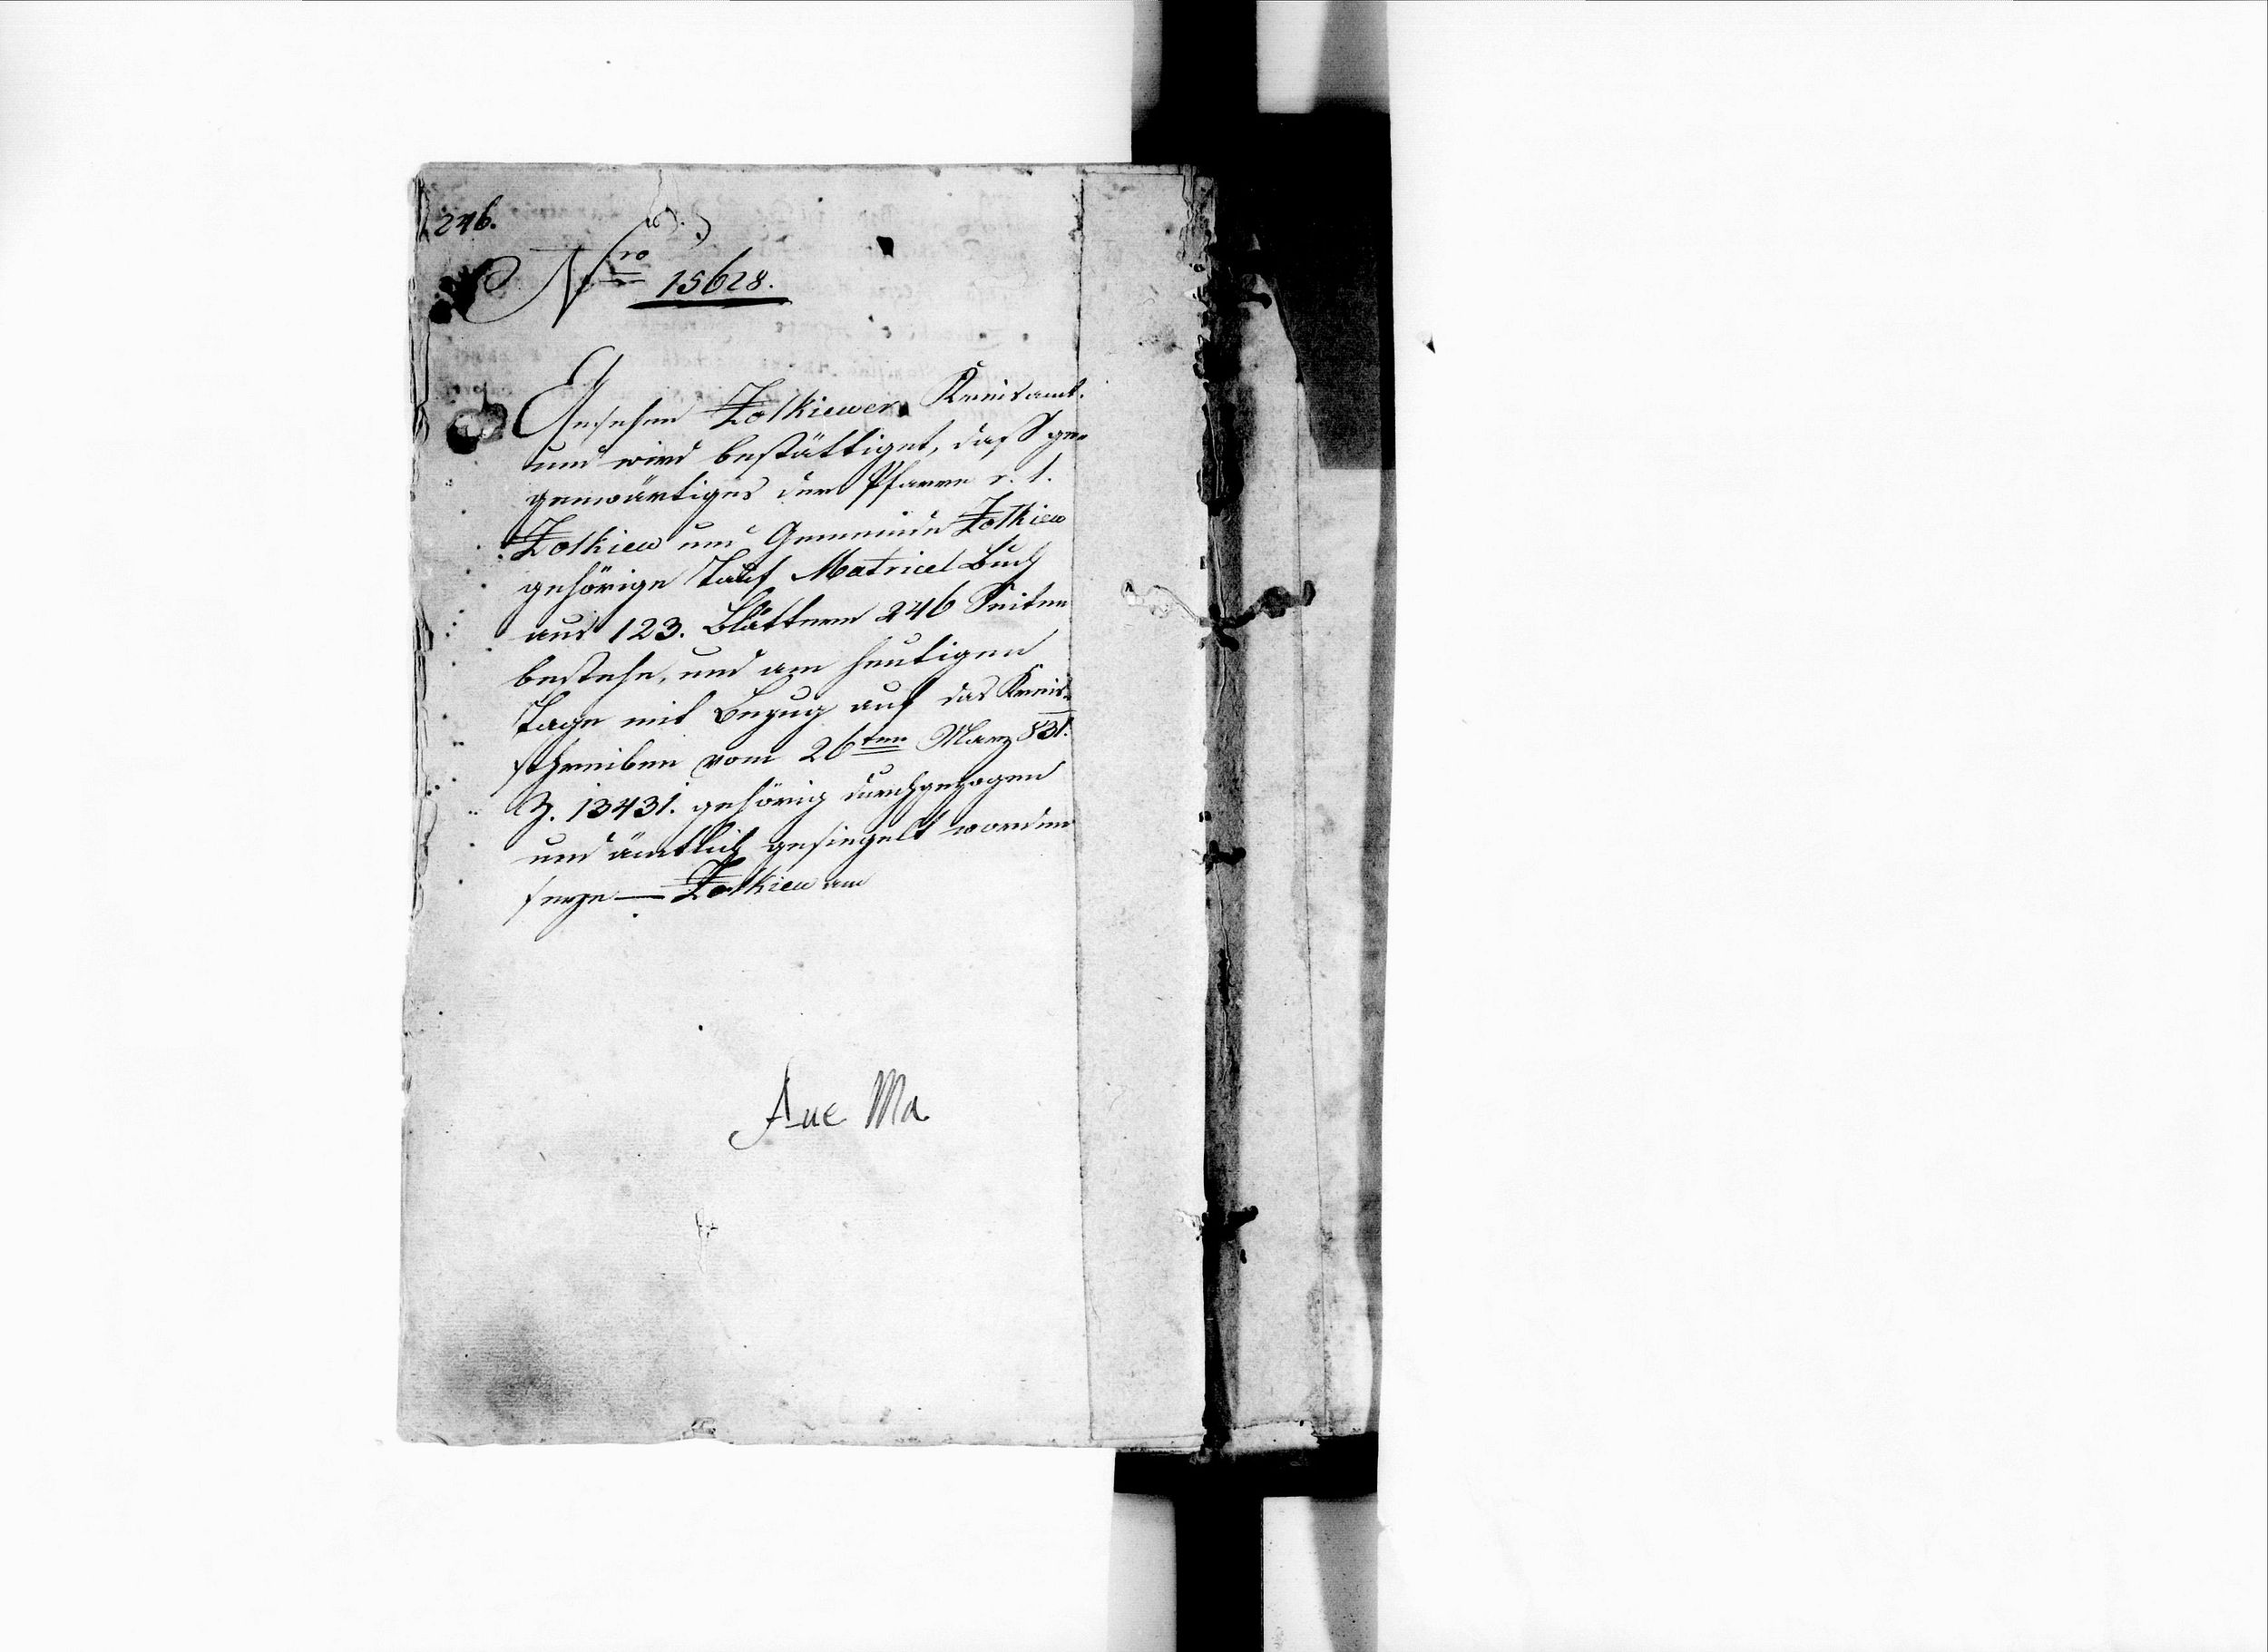 246.
Nro 15628.
Gesehen Żołkiewer Kreisamt.
und wird bestättiget, daß ge-
genwärtiges der Pfarre r. l.
Żołkiew und Gemeinde Żołkiew
gehörige Tauf Matricel Buch
aus 123. Blättern 246 Seiten
bestehe, und am heutigen
Tage mit Bezug auf das Kreis-
schreiben vom 26ten Marz 831.
Z. 13431. gehörig durchgezogen
und ämtlich gesiegelt worden
seye — Żołkiew am
Aue Ma